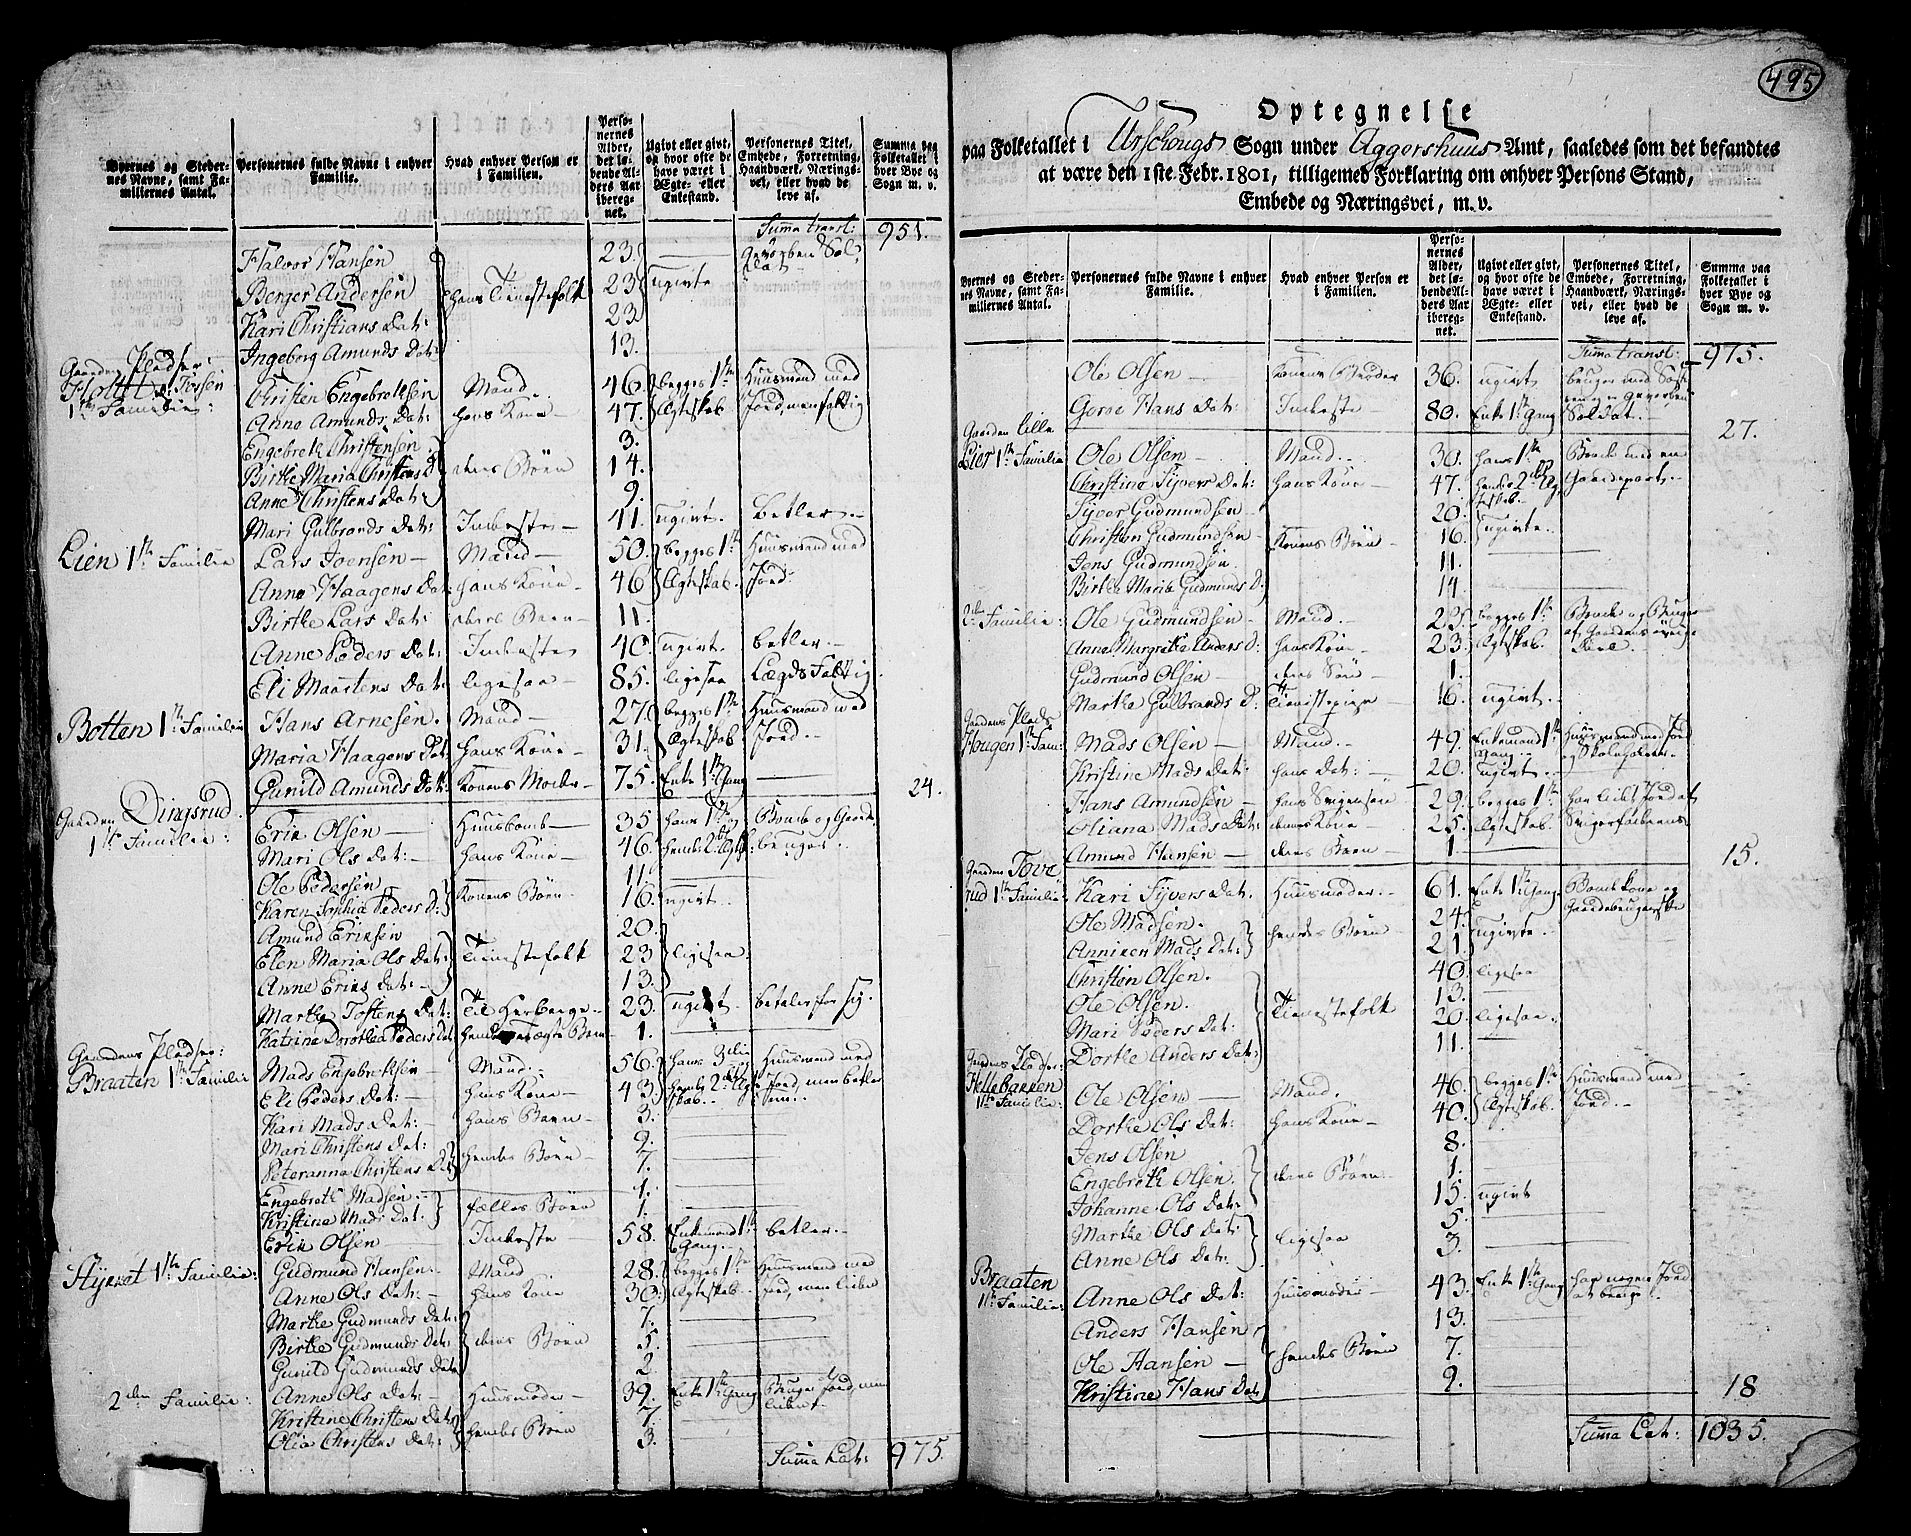 Byernes og Stedernes Navne, samt Familiernes Antal.
Personernes fulde Navne i enhver Familie.
Hvad enhver Person er i Familien.
Personernes Alder, det løbende Alders Aar iberegnet.
Ugivt eller givt, og hvor ofte de have været i Ægte- eller Enkestand.
Personernes Titel, Embede, Forretning, Haandværk, Næringsvei, eller hvad de leve af.
Summa paa Folketallet i hver Bye og Sogn m. v.
Summa transl: 951.
Halvor Hansen 23. — Gevorben Soldat
Berger Andersen hans Tienestefolk 23 ugivte
Kari Christians Dat: 23
Ingeborg Amunds Dat: 13.
Gaardens Pladser:
1ste Familie: Christen Engebrethsen Mand. 46 begges 1ste Huusmand med
Anne Amunds Dat: hans Kone 47. Ægteskab Jord, men fattig
Engebreth Christensen 3.
Birthe Maria Christens D deres Børn 14.
Anne Christens Dat: 9.
Mari Gulbrands Dat: Inderste — 41. ugivt. betler.
Lien 1ste Familie Lars Joensen — Mand — 50. begges 1ste Huusmand med
Anne Haagens Dat: hans Kone — 46 Ægteskab. Jord.
Birthe Lars Dat: deres Barn — 11.
Anne Peders Dat: Inderste 40. ugivt. betler. —
Eli Maartens Dat: ligesaa — 85. ligesaa Lægds Fattig
Botten 1ste Familie Hans Arnesen. Mand — 27. begges 1ste Huusmand med
Maria Haagens Dat: hans Kone — 31. Ægteskab Jord. —
Gunild Amunds Dat: Konens Moder — 75. Enke 1ste Gang — 24.
Gaarden Dingsrud
1ste Familie: Erik Olsen — Huusbond — 35 hans 1ste og Bonde og Gaard
Mari Ols Dat: — hans Kone — 46. hendes 2det Ægtsk: bruger.
Ole Pedersen 11
Karen Sophia Peders D: Konens Børn 16. ugivt.
Amund Eriksen 20.
Elen Maria Ols Dat: Tienestefolk 23 ligesaa
Anne Eriks Dat: — 13.
Marthe Tostens Dat: Til Herberge — 23. ugivt. betaler for sig.
Katrine Dorothea Peders Dat hendes uægte Barn 1.
Gaardens Pladser:
Braaten 1ste Familie Mads Engebrethsen Mand. 56. hans 3die Huusmand med
Eli Peders Dat: hans Kone — 43. hendes 2det Ægteskab. Jord, men betler
Kari Mads Dat: hans Barn — 3.
Mari Christens Dat: 9.
Peteranna Christens Dat hendes Børn — 7.
Engebreth Madsen — 1.
Kristine Mads Dat. fælles Børn 1.
Erik Olsen — Inderste — 58. Enkemand 1ste Gang. betler. —
1ste Familie: Gudmund Hansen. Mand 28. begges 1ste Huusmand med
Anne Ols Dat: — hans Kone 30. Ægteskab. Jord, men lidet
Marthe Gudmunds Dat: 7.
Birthe Gudmunds Dat: deres Børn 5.
Gunild Gudmunds Dat 2.
2den Familie: Anne Ols Dat: — Huusmoder 39. Enke 1ste Gang Bruger Jord, men lidet.
Kristine Christens Dat: hendes Børn 7.
Olia Christens Dat: 3.
Summa Lat: 975.
495
Optegnelse
paa Folketallet i Urschougs Sogn under Aggershuus Amt, saaledes som det befandtes
at være den 1ste Febr. 1801, tilligemed Forklaring om enhver Persons Stand,
Embede og Næringsvei, m. v.
Byernes og Stedernes Navne, samt Familiernes Antal.
Personernes fulde Navne i enhver Familie.
Hvad enhver Person er i Familien.
Personernes Alder, det løbende Alders Aar iberegnet.
Ugivt eller givt, og hvor ofte de have været i Ægte- eller Enkestand.
Personernes Titel, Embede, Forretning, Haandværk, Næringsvei, eller hvad de leve af.
Summa paa Folketallet i hver Bye og Sogn m. v.
Summa transl: 975.
Ole Olsen — Konens Broder 36. ugivt
Gorne Hans Dat: Inderste 80. Enke 1ste Gang Soldat. 27.
Gaarden lille
Lier 1ste Familie Ole Olsen — Mand — 30. hans 1ste Bonde med en
Christine Syvers Dat: hans Kone — 47. hendes 2det Ægteskab. Gaardepart.
Syver Gudmundsen — 20.
Christen Gudmundsen — Konens Børn — 16. ugivte.
Jens Gudmundsen 11.
Birthe Maria Gudmunds D: 14
2den Familie: Ole Gudmundsen — Mand. 25. begges 1ste Bonde og Bruger
Anne Margrethe Anders D: hans Kone 23. Ægteskab. af Gaardens øvrige Deel.
Gudmund Olsen — deres Søn — 1.
Marthe Gulbrands D: Tienestepige 16. ugivt.
Gaardens Plads
Hougen 1ste Fam: Mads Olsen — Mand. — 49. Enkemand 1ste Gang. Huusmand med Jord og Skoleholder.
Kristine Mads Dat: hans Dat: — 20. ugivt.
Hans Amundsen — hans Svigersøn — 29. begges 1ste har lidet Jord af
Oliana Mads Dat: dennes Kone — 25. Ægteskab. Svigerfaderens
Amund Hansen — deres Barn — 1. 15.
Gaarden Toverud 1ste Familie: Kari Syvers Dat: Huusmoder. — 61. Enke 1ste Gang Bondekone og Gaardebrugerske
Ole Madsen. hendes Børn — 24. ugivte.
Anniken Mads Dat: 21.
Christen Olsen. 40. ligesaa
Ole Olsen. Tienestefolk 13.
Mari Peders Dat: 20. ligesaa.
Dorthe Anders Dat: 11.
Gaardens Pladser:
Hellebakken
1ste Familie: Ole Olsen — Mand. 46. begges 1ste Huusmand med
Dorthe Ols Dat: hans Kone — 40. Ægteskab. Jord. —
Jens Olsen 8.
Engebreth Olsen. deres Børn — 1.
Johanne Ols Dat: 15. ugivt
Marthe Ols Dat: ligesaa 5.
Anne Ols Dat: 3.
Braaten
1ste Familie: Anne Ols Dat: Huusmoder 43. Enke 1ste Gang har nogen Jord at bruge.
Anders Hansen 13.
Ole Hansen — hendes Børn 7.
Kristine Hans Dat 9. 18
Summa Lat: 1035.